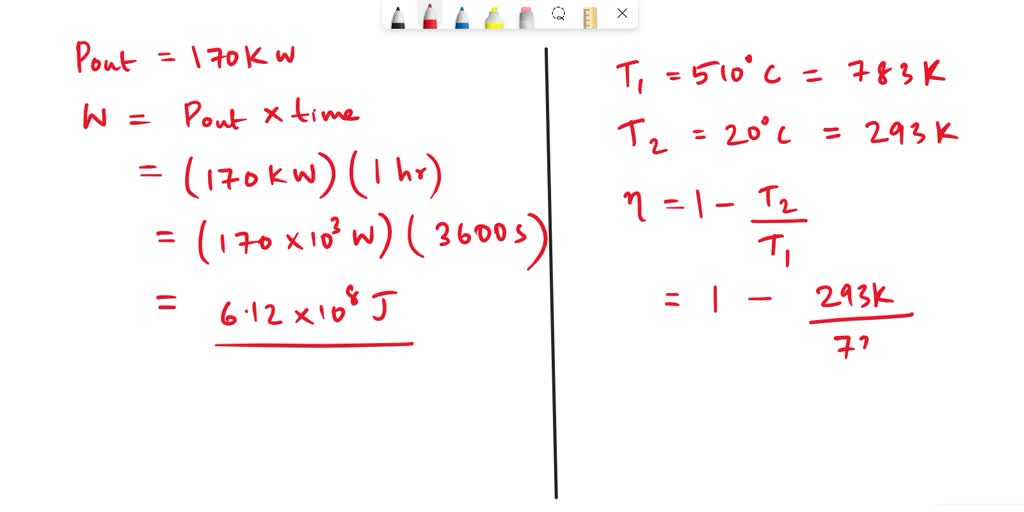 Pout = 170KW
W = Pout × time
= (170KW)(1 hr)
= (170 ×10³ W)(3600s)
= 6.12 ×10⁸ J
T₁ = 510°C = 783K
T₂ = 20°C = 293K
η = 1 - T₂/T₁
= 1 - 293K/7